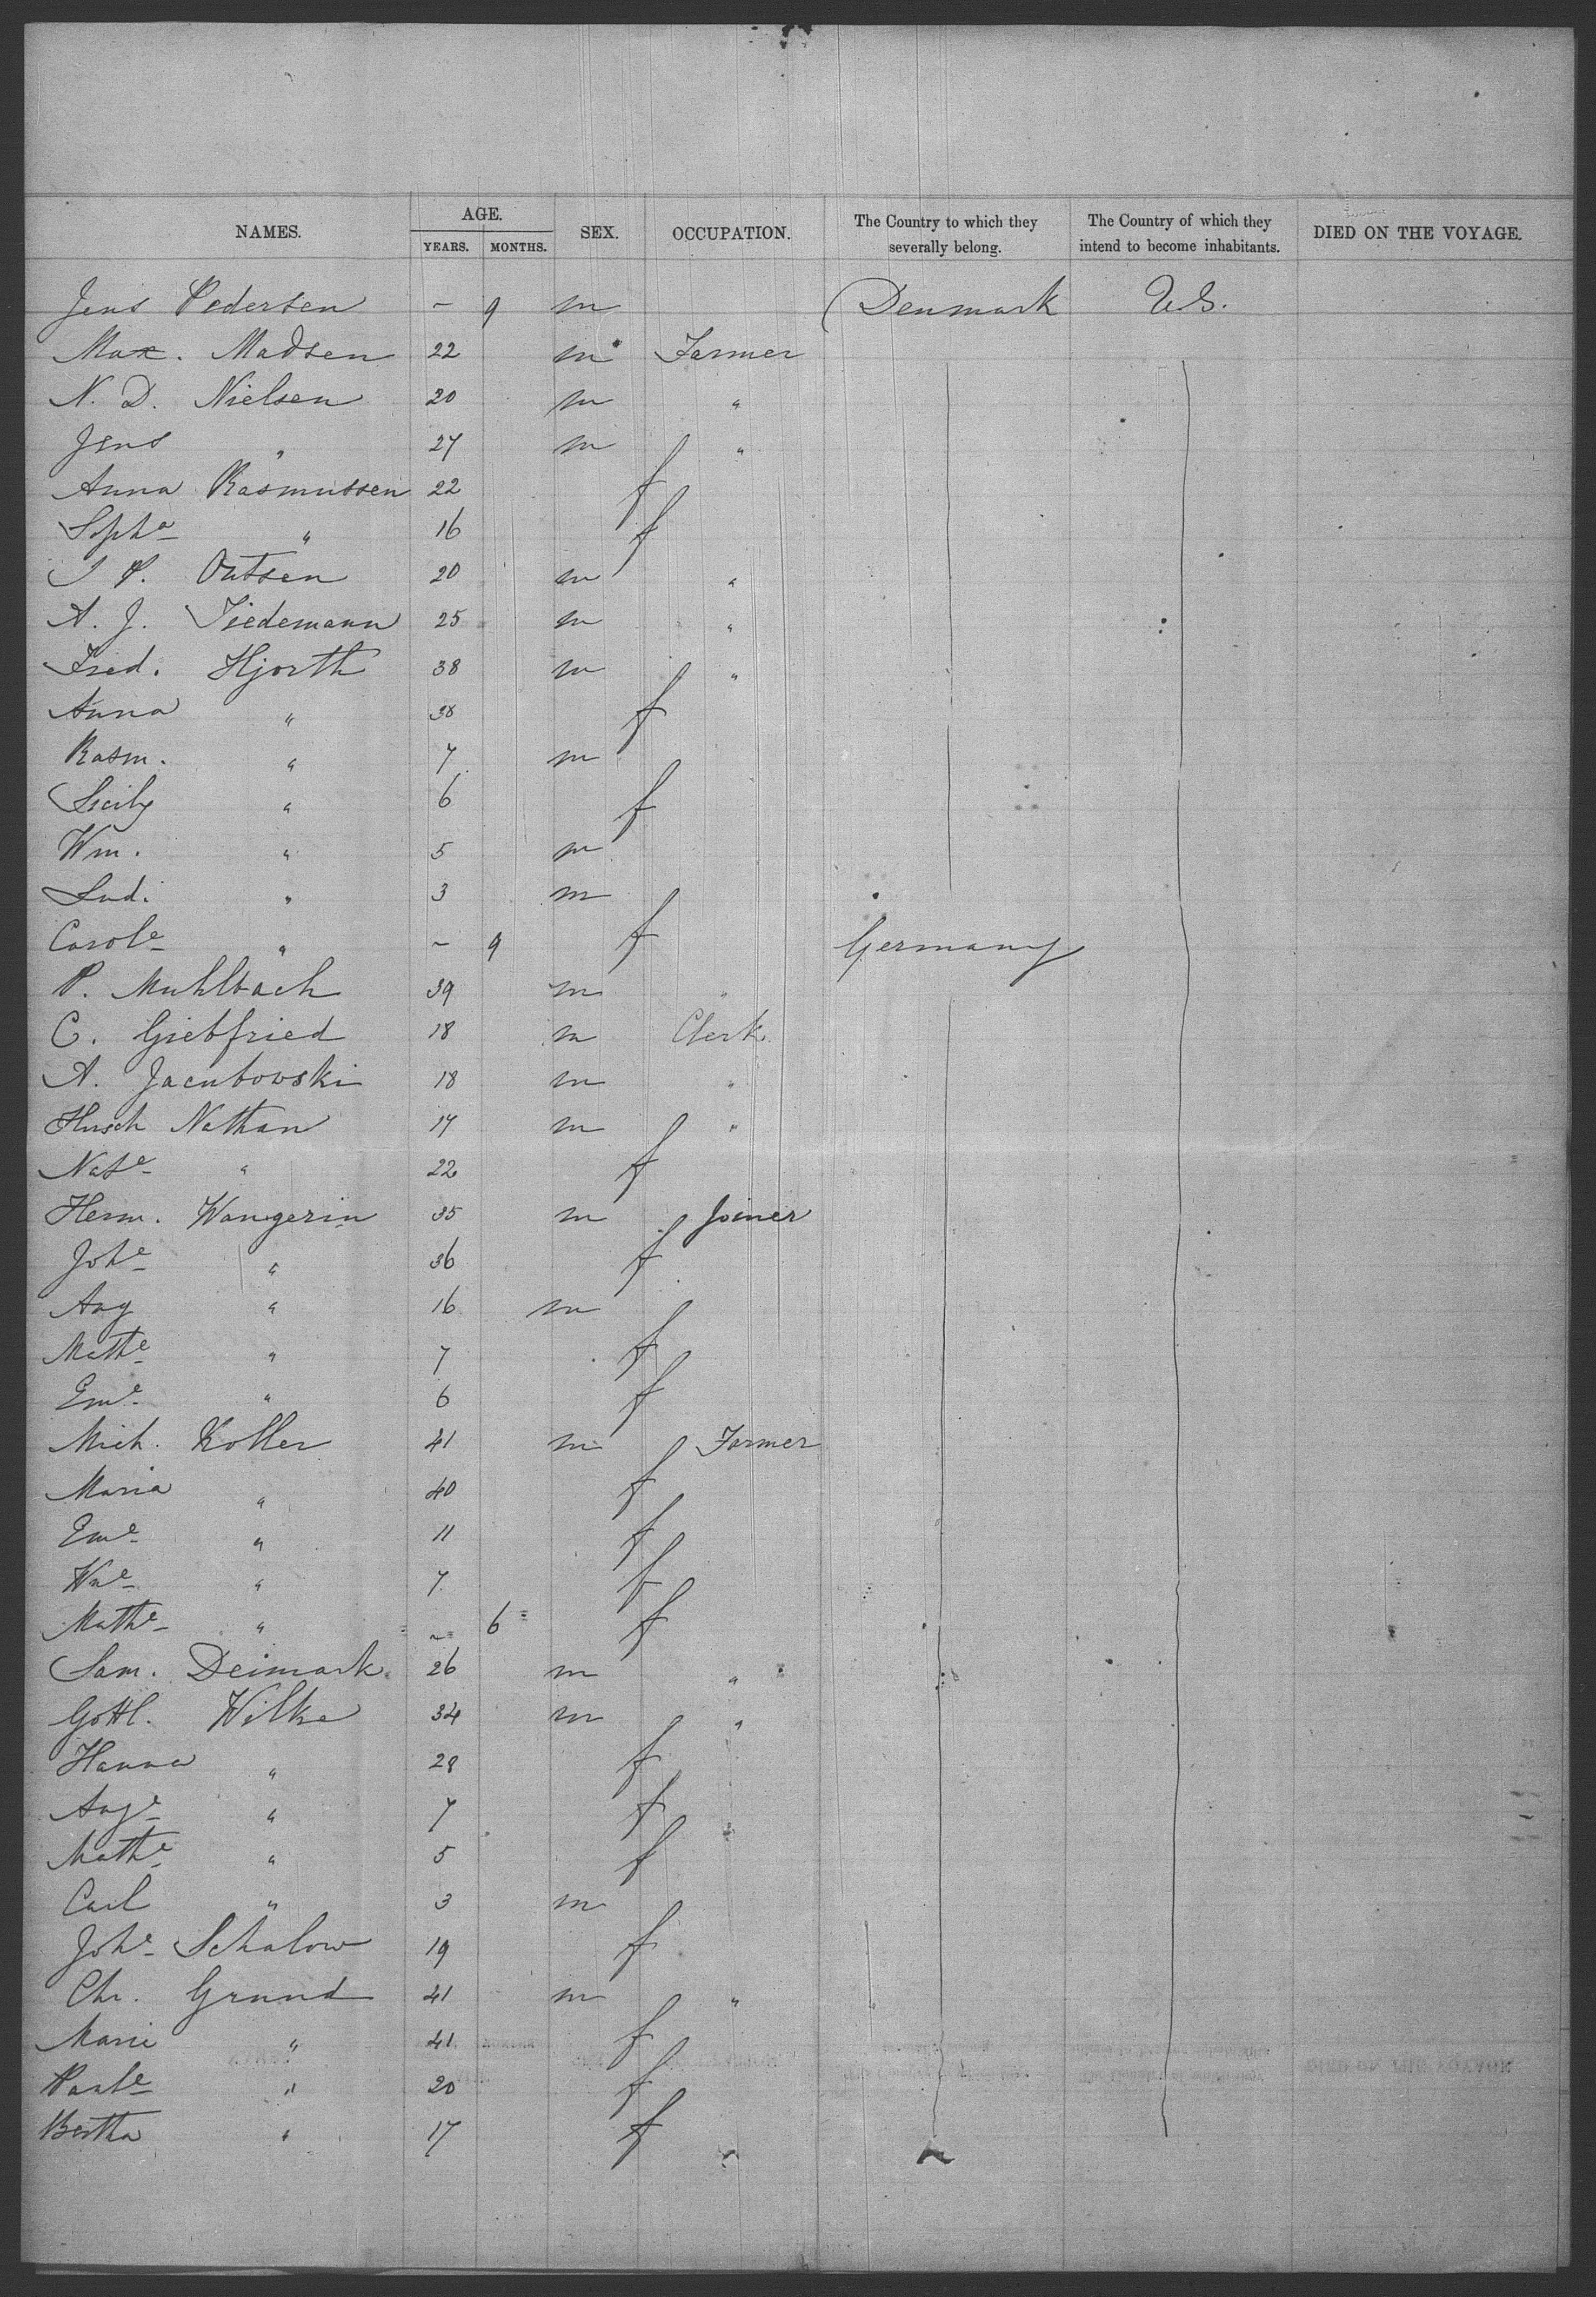 NAMES. AGE. YEARS. MONTHS. SEX. OCCUPATION. The Country to which they severally belong. The Country of which they intend to become inhabitants. DIED ON THE VOYAGE.
Jens Pedersen – 9 m Denmark U.S.
Max. Madsen 22 m Farmer
N. D. Nielsen 20 m "
Jens " 27 m "
Anna Rasmussen 22 f
Sopha " 16 f
J P. Outsen 20 m "
A. J. Tiedemann 25 m "
Fred. Hjorth 38 m "
Anna " 38 f
Rasm. " 7 m
Sicily " 6 f
Wm. " 5 m
Lud. " 3 m
Carole " – 9 f Germany
P. Muhlbach 39 m "
C. Giebfried 18 m Clerk
A. Jacubowski 18 m "
Hirsch Nathan 17 m "
Nate " 22 f
Herm. Wangerin 35 m Joiner
Johe " 36 f
Aug " 16 m
Mathe " 7 f
Eme " 6 f
Mich. Koller 41 m Farmer
Maria " 40 f
Eme " 11 f
Wme " 7 f
Mathe " – 6 f
Sam. Deimark 26 m "
Gottl. Wilke 34 m "
Hanna " 28 f
Auge " 7 f
Mathe " 5 f
Carl " 3 m
Johe Schalow 19 f
Chr. Grund 41 m "
Marie " 41 f
Paule " 20 f
Bertha " 17 f